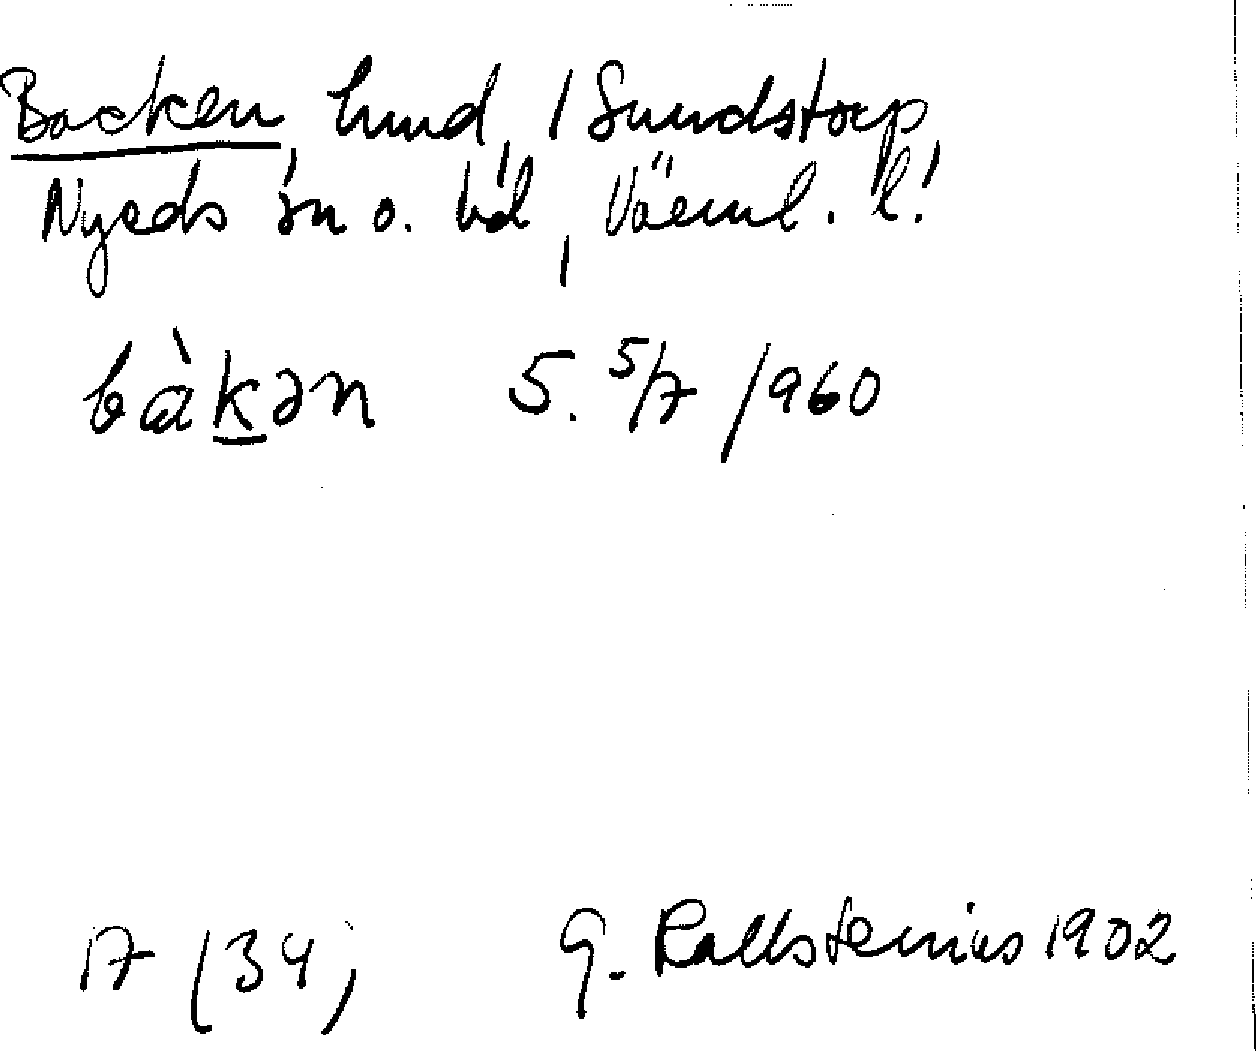 Backen, hmd, i Sundstorp,
Nyeds sn o. hd, Värml. l.
bàkən 5. 5/7 1960
17 (34)
G. Kallstenius 1902